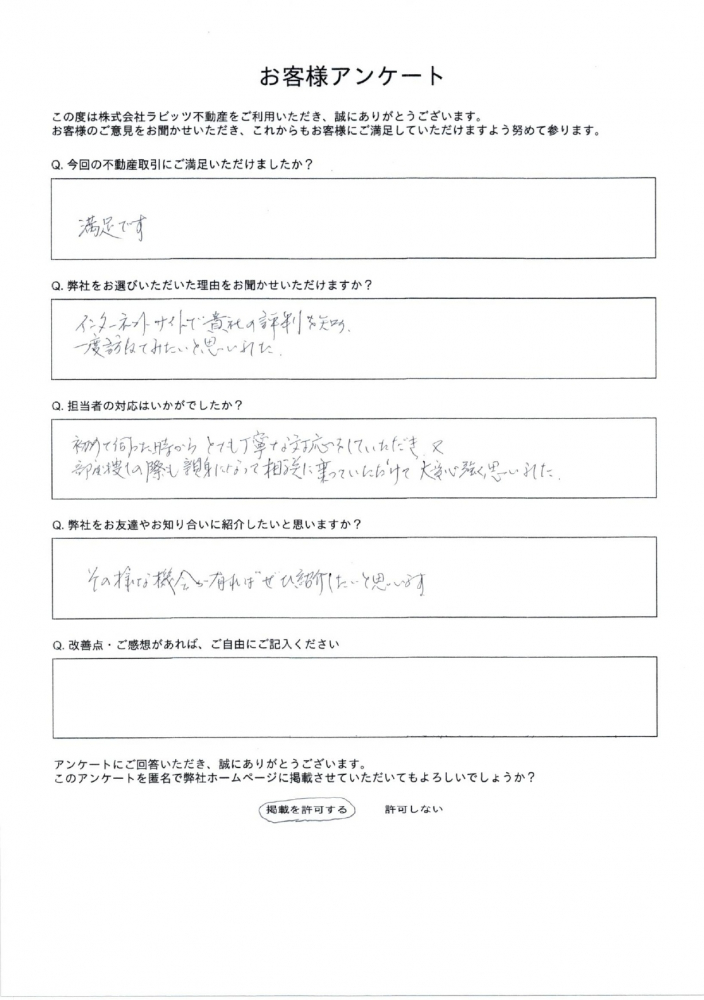 お客様アンケート
この度は株式会社ラビッツ不動産をご利用いただき、誠にありがとうございます。
お客様のご意見をお聞かせいただき、これからもお客様にご満足していただけますよう努めて参ります。
Q. 今回の不動産取引にご満足いただけましたか？
満足です
Q. 弊社をお選びいただいた理由をお聞かせいただけますか？
インターネットサイトで貴社の評判を知り、
一度訪ねてみたいと思いました。
Q. 担当者の対応はいかがでしたか？
初めて伺った時からとても丁寧な対応をしていただき、又
部屋捜しの際も親身になって相談に乗っていただけて大変心強く思いました。
Q. 弊社をお友達やお知り合いに紹介したいと思いますか？
その様な機会が有ればぜひ紹介したいと思います
Q. 改善点・ご感想があれば、ご自由にご記入ください
アンケートにご回答いただき、誠にありがとうございます。
このアンケートを匿名で弊社ホームページに掲載させていただいてもよろしいでしょうか？
掲載を許可する 許可しない